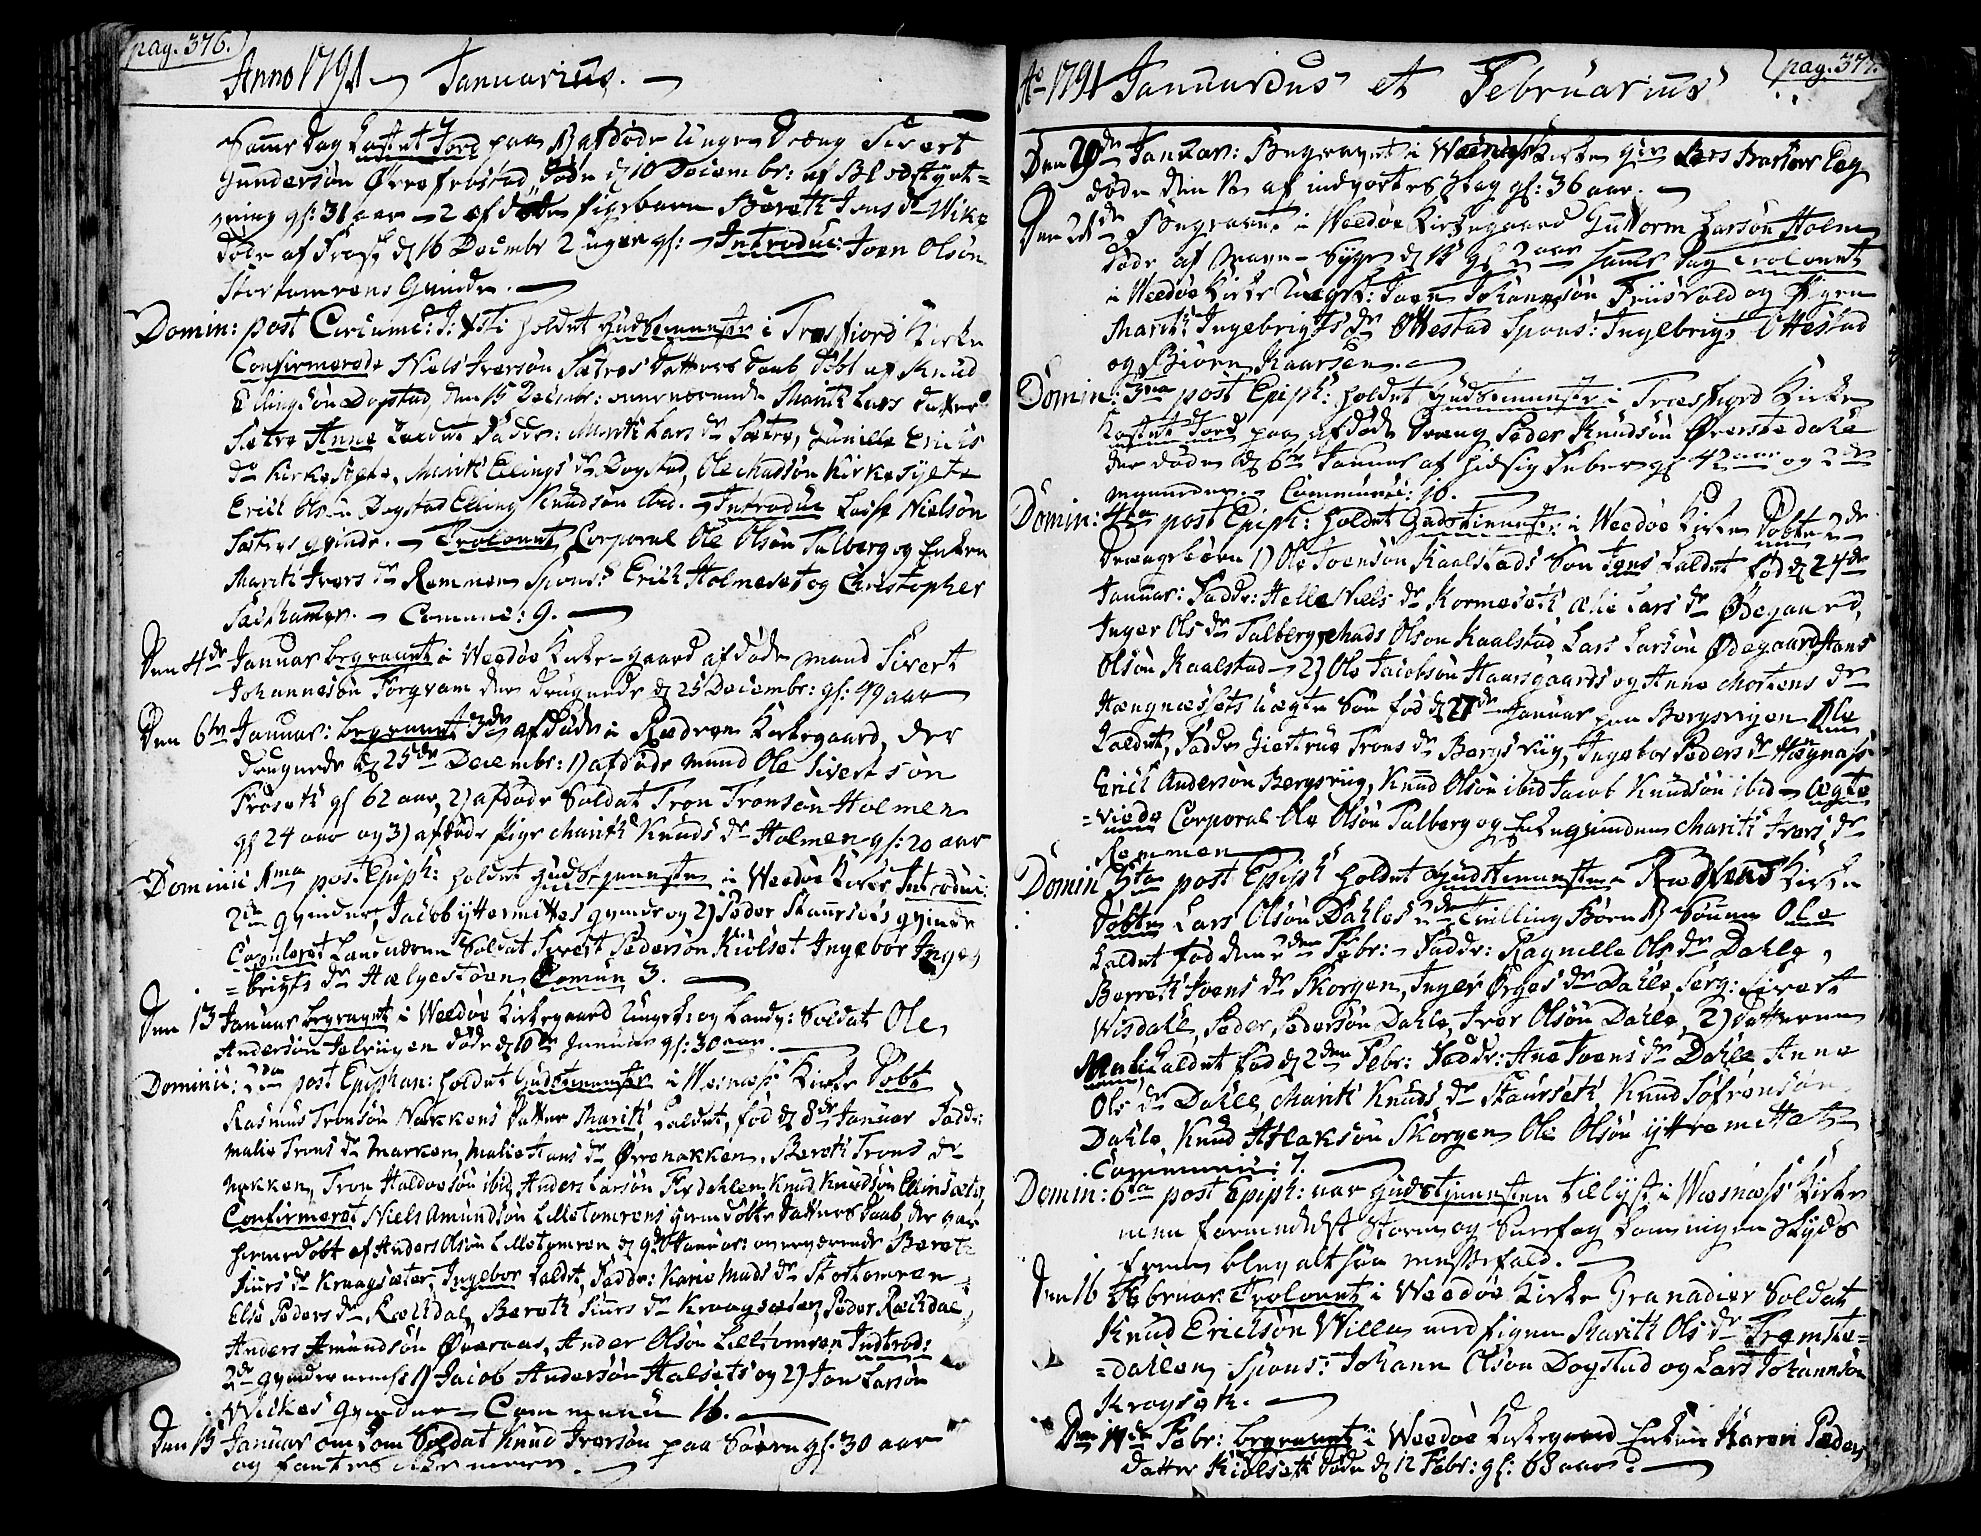 pag. 376.
Anno 1791 Januarius.
Samme Dag Kastet Jord paa 1) afdøde Unge Dreng Sivert
Gundersøn Ørrefrostad, døde d 10 Decembr: af Blodstyrt=
ning gl: 31 aar 2 afdøde pigebarn Bereth Jens dr Wike
døde af d 16 Decembr 2 uger gl: Introduc: Joen Olsøn
Stortomrens Qvinde.
Domin: post Circumc: J: Xsti holdet Gudstienneste i Tresfiord Kirke
Confirmerede Niels Iversøn Sætres Datters daab døbt af Knud
Ellingsøn Dogstad, den 15 Decembr: overværende Marith Lars datter
Sætre Anne kaldet Fadd: Marith Lars dr Sætre, Gunille Erichs
dr Kirkesylte, Marith Ellings dr Dogstad, Ole Madsøn Kirkesylte
Erich Olsøn Dogstad Elling Knudsøn ibid. Introduc Nielsøn
Sætres qvinde. Trolovet Corporal Ole Olsøn Talberg og Enken
Marith Ivers dr Remmen Spons: Erich Holmeset og Christopher
Commun: 9.
Den 4de Januar begravet i Weedøe Kirke-gaard afdøde mand Sivert
Johannesøn Forgram der druknede d 25 Decembr: gl: 49 aar
Den 6te Januar: begravet 3de afdøde i Rødven Kirkegaard, der
druknede d 25de Decembr: 1) afdøde mand Ole Sivertsøn
Frøseth gl 62 aar, 2) afdøde Soldat Tron Tronsøn Holmen
gl 24 aar og 3) afdøde pige Marith Knuds dr Holmen gl: 20 aar
Dominic 1ma post Epiph: holdet Gudstjeneste i Weedøe Kirke Introduc:
2de qvinder, Jacob yttermittes qvinde og 2) Peder Staursets qvinde
Copuleret Landværn Soldat Sivert Pedersøn Kiølset Ingebor Inge
=brigts dr Hælgestøen Comun 3.
Den 13 Januar begravet i Weedøe Kirkegaard Ungk: og Landv: Soldat Ole
Andersøn døde d 10de Januar gl: 30 aar.
Dominic: 2da post Epiphan: holdet Gudstieneste i Wæsnæss Kirke Døbt
Rasmus Tronsøn Nakkens datter Marith kaldet, fød d 8de Januar Fadd:
Malie Trons dr Marken, Malie Hans dr Ørenakken, Bereth Trons dr
Nakken, Tron Haldoersøn ibid, Anders Larsøn Knud Knudsøn
Confirmeret Niels Amundsøn Lilletomrens hiemdøbte datters daab, der var
hiemedøbt af Anders Olsøn Lilletomren d 9de Januar: overværende Bereth
Siurs dr Kraagsæter, Ingebor kaldet, Fadd: Karie Mads dr Stortomren
Else Peders dr Rækdal, Bereth Siurs dr Kraagsæter, Peder Rækdal,
Anders Amundsøn Øveraas, Ander Olsøn Lilletomren Indtrod:
2de qvinder nemlig 1) Jacob Andersøn Halsets og 2) Jon Larsøn
Wikes qvinder Communi 16.
Den 15 Januar omkom Soldat Knud Iversøn paa Søen gl: 30 aar
og fantes ikke meer.
pag. 377.
Ao 1791 Januarius et Februarius
Den 20de Januar: Begravet i Wæsnæs Kirke Lars
døde den af indvortes Slag gl: 36 aar.
Den 21de Begravet i Weedøe Kirkegaard Guttorm Larsøn Holm
døde af d gl 2 aar samme dag Trolovet
i Weedøe Kirke Ungk: Joen Johannesøn Friisvold og Pigen
Marith Ingebrigts dr Øttestad Spons: Ingebrigt Øttestad
og Biørn Kaarsen.
Domin: 3tia post Epiph: holdet Gudstieneste i Tresfiord Kirke
Kastet Jord paa afdøde Dreng Peder Knudsøn Øverstedale
der døde d 6te Januar af hidsig Feber gl 42 aar og 2de
maaneder. Communic: 10.
Domin: 4ta post Epiph: holdet Gudstieneste i Weedøe Kirke Døbte 2de
Drengebørn 1) Ole Joensøn Kaalstads Søn Jens kaldet fød d 24de
Januar: Fadd: Helle Niels dr Kormeseth Lars dr Ødegaard,
Inger Ols dr Talberg, Mads Olsøn Kaalstad Lars Larsøn Ødegaard, Hans
Olsøn Kaalstad 2) Ole Jacobsøn Haarsgaards og Anne Mortens dr
Hængnæssets uægte Søn fød d 27de Januar paa Bergsvigen Ole
kaldet, Fadd Giertrue Trons dr Bergsviig, Ingebor Peders dr
Erich Andersøn Bergsviig, Knud Olsøn ibid Jacob Knudsøn ibid Ægte
=viede Corporal Ole Olsøn Talberg og Enkeqvinden Marith Ivers dr
Remmen
Domin 5ta post Epiph holdet Gudstieneste Rødvens Kirke
Døbte Lars Olsøn Dahles 2de Tvilling Børn 1) Sønnen Ole
kaldet fød den 2den Febr: Fadd: Ragnille Ols dr Dahle,
Bereth Joens dr Skorgen, Inger Ørges dr Dahle, Serg: Sivert
Wisdahl, Peder Pedersøn Dahle, Iver Olsøn Dahle, 2) datteren
Mali kaldet fød d 2den Febr: Fadd: Ane Joens dr Dahle Anne
Ols dr Dahle, Marith Knuds dr Staurseth, Knud Søfrensøn
Dahle, Knud Aslaksøn Skorgen Ole Olsøn yttremittet
Communic: 7.
Domin: 6ta post Epiph: var Gudstjenesten tillyst i Wæsnæss Kirke
men formedelst Storm og Sneefog kom ingen Skyds
frem blev altsaa messefald.
Den 16 Februar: Trolovet i Weedøe Kirke Granadier Soldat
Knud Erichsøn Willa med pigen Marith Ols dr Fremste=
=dahlen, Spons: Johann Olsøn Dogstad og Lars Johannsøn
Kragseth.
Den 17de Febr: begravet i Weedøe Kirkegaard Enken Karen Peders
datter Kiølseth døde d 12 Febr: gl: 68 aar.